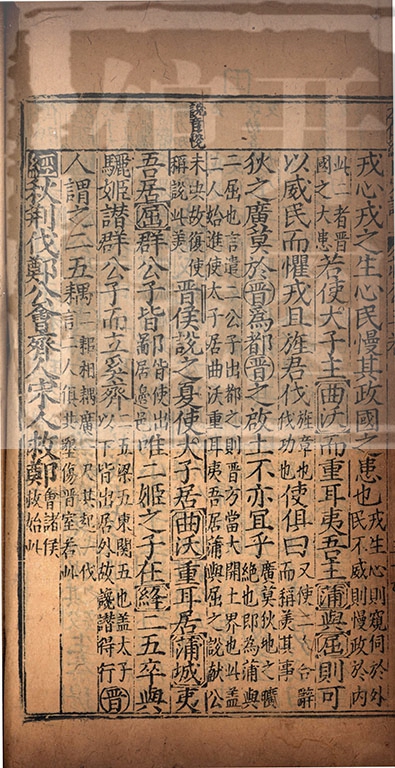 戎心戎之生心民慢其政國之患也戎生心則窺伺於外民不威則慢政於內
此二者晉國之大患若使太子主曲沃而重耳夷吾主蒲與屈則可
以威民而懼戎且旌君伐旌章也伐功也使俱曰又使二五合辭而稱美其事
狄之廣莫於晉為都晉之啟土不亦宜乎廣莫狄地之曠絕也即為蒲與
二屈也言遣二公子出都之則晉方當大開土界也此蓋
二人始進使太子居曲沃重耳夷吾居蒲與屈之說獻公
說音悅
未決故復使稱說此美晉侯說之夏使太子居曲沃重耳居蒲城夷
吾居屈群公子皆鄙皆使出居邊邑唯二姬之子在絳二五卒與
驪姬譖群公子而立奚齊二五梁五東關五也蓋太子以下皆出居外故讒譖得行晉
人謂之二五耦二耜相耦廣一尺共起一伐言二人俱共墾傷晉室若此
經秋荊伐鄭公會齊人宋人救鄭會諸侯救鄭始此